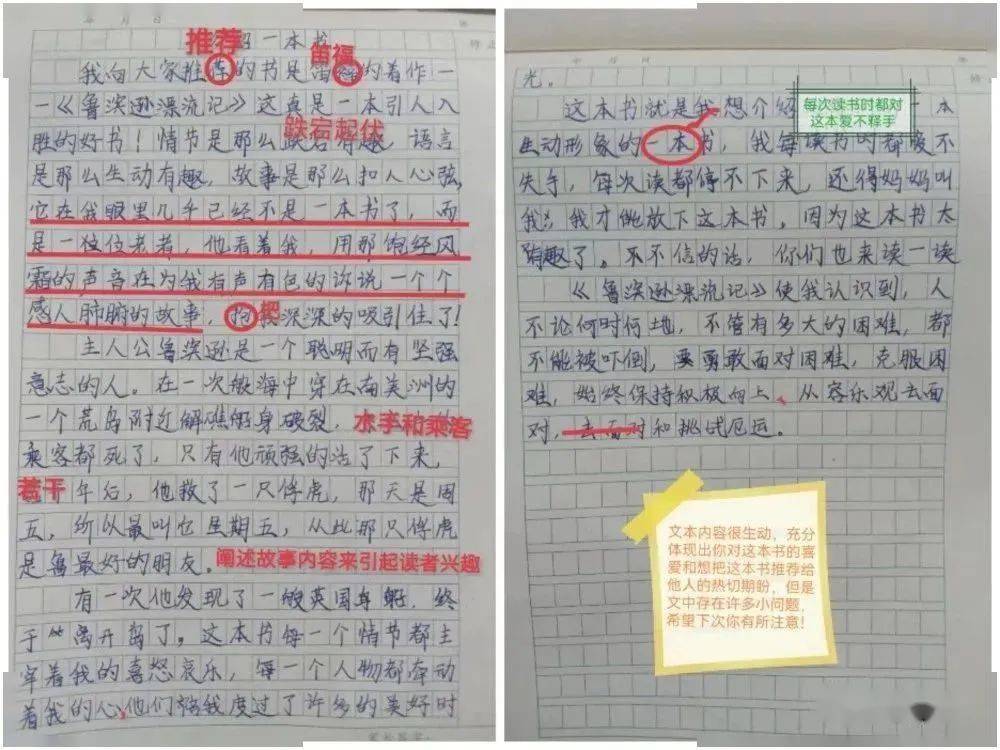 年 月 日
推荐
一本书
笛福
我向大家推荐的书是笛福的着作一
一《鲁滨逊漂流记》这真是一本引人入
跌宕起伏
胜的好书!情节是那么跌宕有趣,语言
是那么生动有趣,故事是那么扣人人心弦,
它在我眼里几乎已经不是一本书了,而
是一位位老者,他看着我,用那饱经风
霜的声音在为我有声有色的诉说一个个
感人肺腑的故事,把
深深的吸引住了!
主人公鲁滨逊是一个聪明而有坚强
意志的人。在一次航海中穿在南美洲的
一个荒岛附近解礁船身破裂,
水手和乘客
乘客都死了,只有他顽强的活了下来,
若干
年后,他救了一只俘虎,那天是周
五,所以最叫它星期五,从此那只俘虎
是鲁最好的朋友。
阐述故事内容来引起读者兴趣
有一次他发现了一艘英国舟艇,终
于离开岛了。这本书每一个情节都主
牢着我的喜怒哀乐,每一个人物都牵动
着我的心,他们给我度过了许多的美好时
光。
每次读书时都对
这本爱不释手
这本书就是我想介绍
一本
生动形象的一本书,我每读书时都爱不
失手,每次读都停不下来,还得妈妈叫
我,我才能放下这本书。因为这本书太
有趣了。不不信的话,你们也来读一读
《鲁滨逊漂流记》使我认识到,人
不论何时何地,不管有多大的困难,都
不能被吓倒,要勇敢面对困难,克服困
难,始终保持积极向上、从容乐观去面
对,去面对和挑战厄运。
文本内容很生动,充分
体现出你对这本书的喜
爱和想把这本书推荐给
他人的热切期盼,但是
文中存在许多小问题,
希望下次你有所注意!